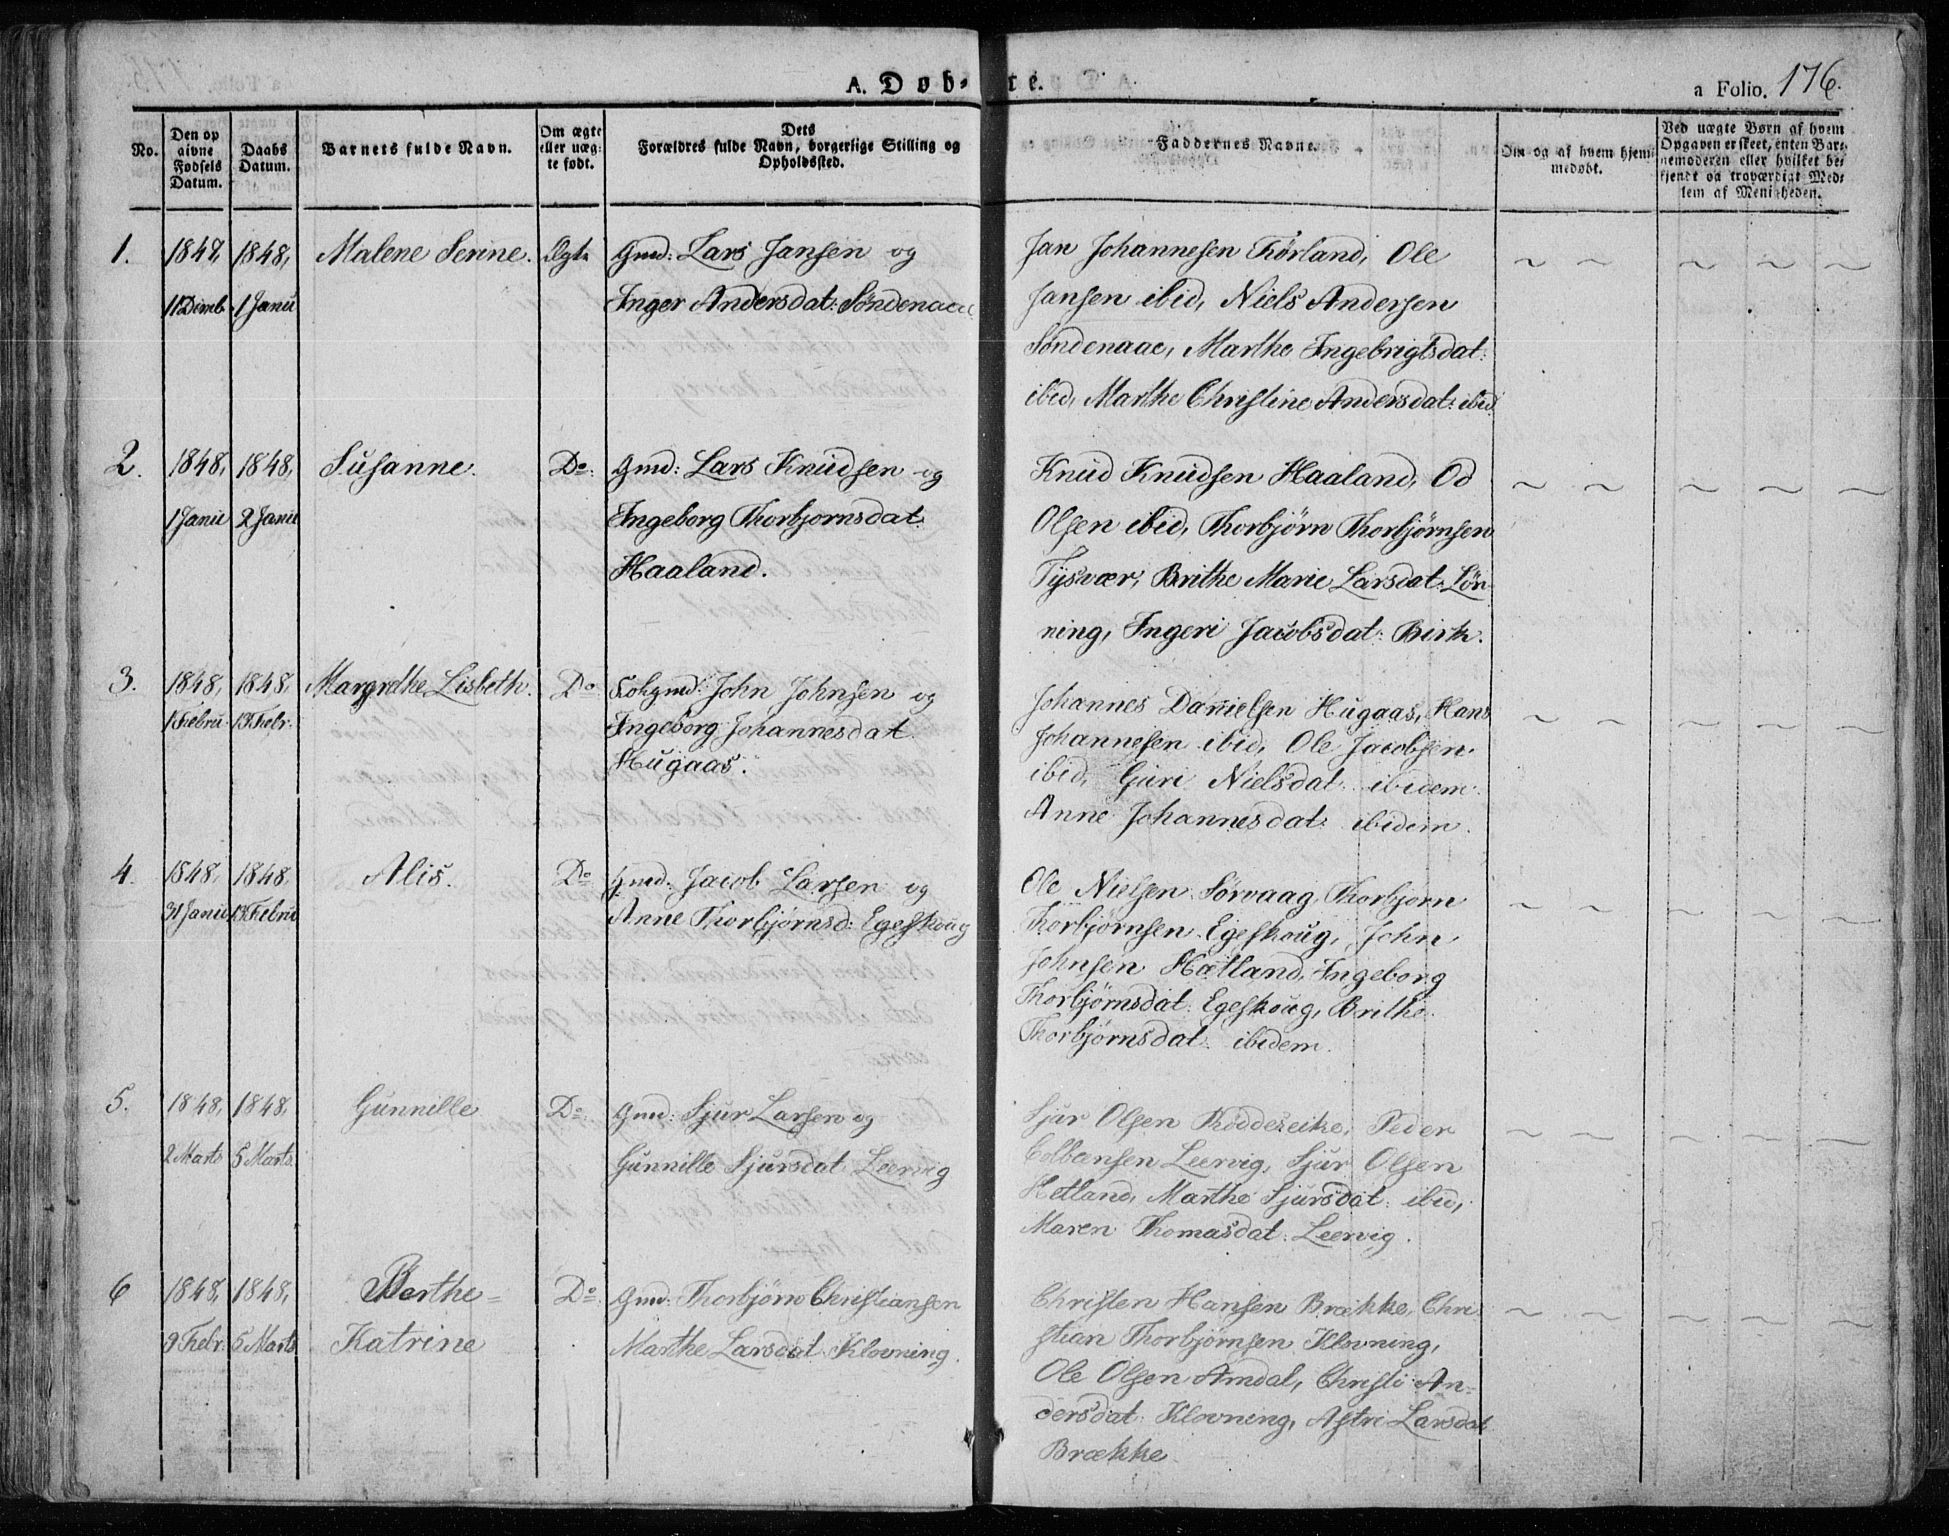 A. Døb-te.
a Folio. 176.
No.
Den op
givne
Fødsels
Datum.
Daabs
Datum.
Barnets fulde Navn.
Om ægte
eller uæg-
te født.
Dets
Forældres fulde Navn, borgerlige Stilling og
Opholdssted.
Faddernes Navne.
Om og af hvem hjem-
medøbt.
Ved uægte Børn af hvem
Opgaven er skeet, enten Bar-
nemoderen eller hvilket be-
kjendt og troværdigt Med-
lem af Menigheden.
1. 1847, 1848, Malene Serine. Ægte Gmd: Lars Jansen og
11 Decmb. 1 Janu Inger Andersdat: Søndenaae
Jan Johannesen Førland, Ole
Jansen ibid, Niels Andersen
Søndenaae, Marthe Ingebrigtsdat:
ibid, Marthe Christine Andersdat: ibid
2. 1848, 1848, Susanne. Do. Gmd: Lars Knudsen og
1 Janu 2 Janu Ingeborg Thorbjørnsdat:
Haaland.
Knud Knudsen Haaland, Od
Olsen ibid, Thorbjørn Thorbjørnsen
Tysvær, Brithe Marie Larsdat: Løn-
ning, Ingeri Jacobsdat: Birk.
3. 1848, 1848, Margrethe Lisbeth. Do John Johnsen og
1 Febru 13 Febr. Ingeborg Johannesdat.
Hugaas.
Johannes Danielsen Hugaas, Hans
Johannesen ibid, Ole Jacobsen
ibid, Guri Nielsdat: ibidem.
Anne Johannesdat: ibidem.
4. 1848, 1848, Alis. Do Gmd. Jacob Larsen og
31 Janu 13 Febru Anne Thorbjørnsd: Egeskoug
Ole Nielsen Sørvaag, Thorbjørn
Thorbjørnsen Egeskoug, John
Johnsen Hætland, Ingeborg
Thorbjørnsdat: Egeskoug, Brithe
Thorbjørnsdat: ibidem.
5. 1848, 1848, Gunnille Do. Gmd: Sjur Larsen og
2 Marts 5 Marts. Gunnille Sjursdat Leervig
Sjur Olsen Røddeseike, Peder
Colbansen Leervig, Sjur Olsen
Hetland, Marthe Sjursdat: ibid,
Maren Thomasdat: Leervig.
6 1848, 1848, Berthe= Do. Gmd: Thorbjørn Christiansen
9 Febr. 5 Marts Katrine Marthe Larsdat Klovning.
Christen Hansen Brække, Chri
stian Thorbjørnsen Klovning,
Ole Olsen Amdal, Christi An-
dersdat: Klovning, Astri Larsdat
Brække